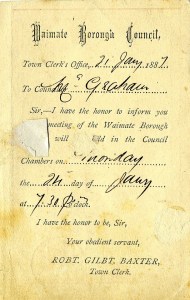 Waimate Borough Council,
Town Clerk's Office, 21 Jany 1887
To Coun Graham
Sir,—I have the honor to inform you
meeting of the Waimate Borough
will ld in the Council
Chambers on Monday
the 24 day of Jany
at 7.30 o'clock.
I have the honor to be, Sir,
Your obedient servant,
ROBT. GILBT. BAXTER,
Town Clerk.